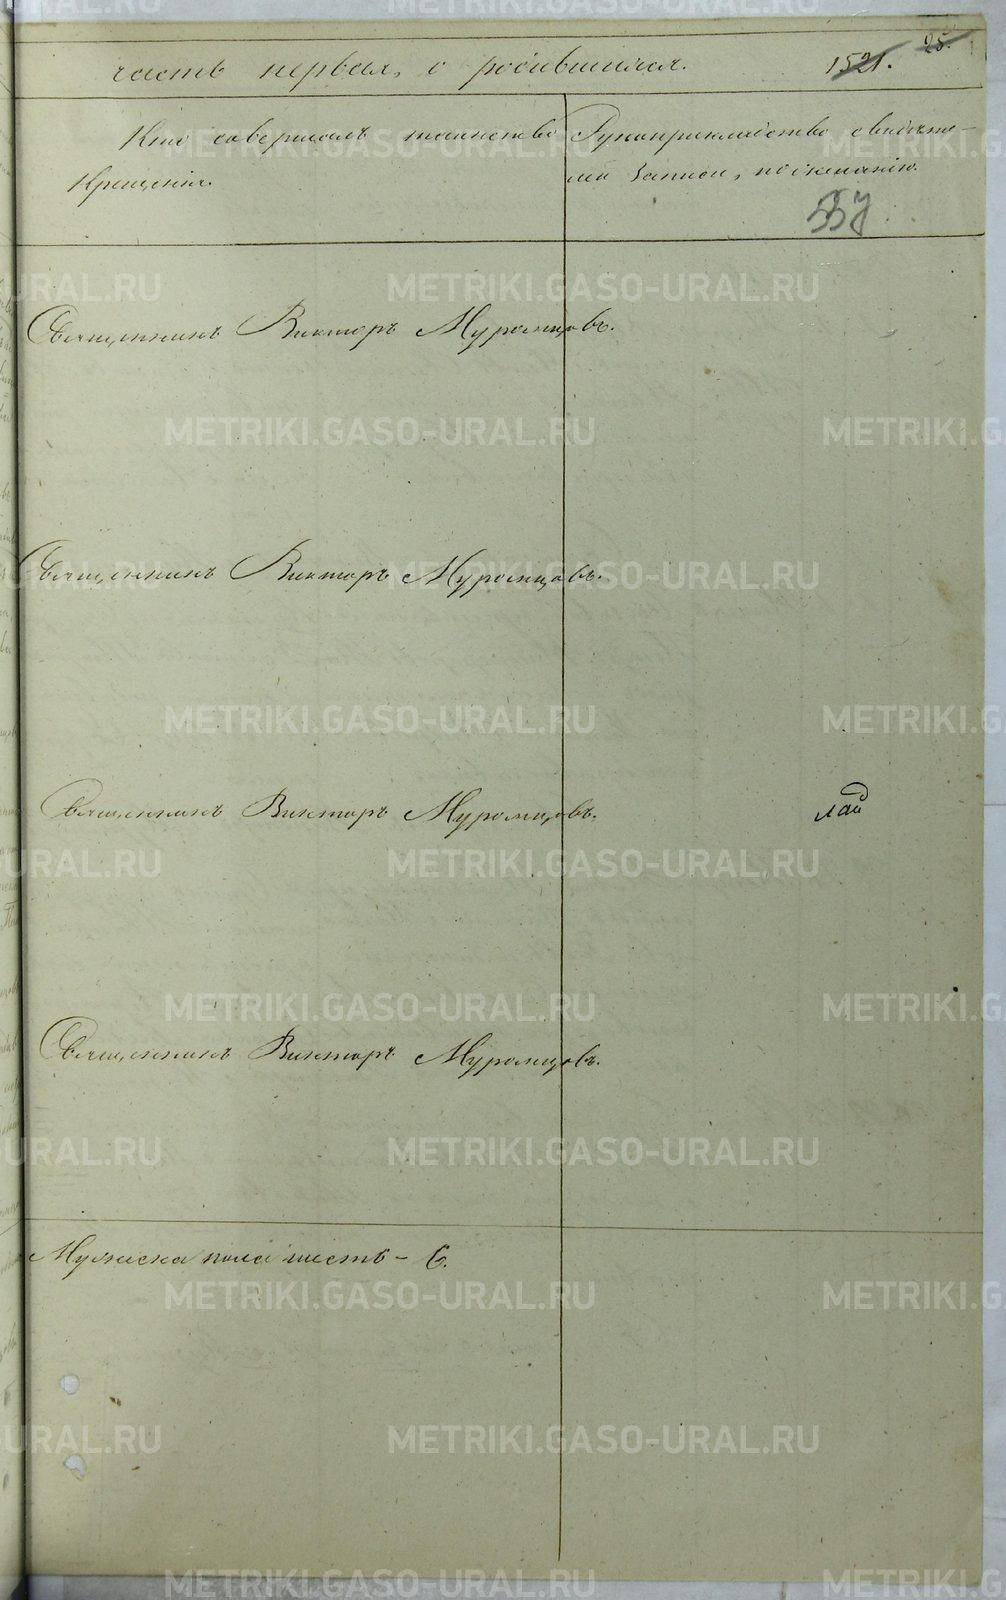 25.
часть первая, о родившихся. 1521.
Кто совершалъ таинство
Крещенія.
Рукоприкладство свидѣте-
лей записи, по желанію.
557
Священникъ Викторъ Муромцовъ.
Священникъ Викторъ Муромцовъ.
Священникъ Викторъ Муромцовъ.
Священникъ Викторъ Муромцовъ.
Мужеска пола шесть – 6.
METRIKI.GASO-URAL.RU